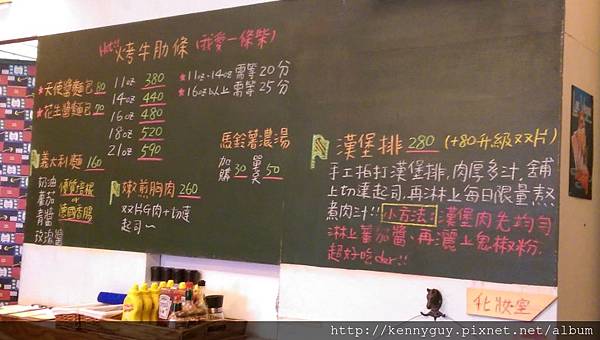 Hot!! 烤牛肋條 (我愛一條柴)
★天使醬麵包 80
★花生醬麵包 70
11oz 380
14oz 440
16oz 480
18oz 520
21oz 590
★11oz-14oz 需等20分
★16oz以上需等25分
義大利麵 160
奶油
蕃茄
青醬
優質培根
or
德國香腸
嫩煎胸肉 260
双片G肉+切達
起司~
馬鈴薯濃湯
加購 30
單點 50
漢堡排 280 (+80升級双片)
手工拍打漢堡排,肉厚多汁,舖
上切達起司,再淋上每日限量熬
煮肉汁!! 小方法:漢堡肉先均勻
淋上蕃茄醬、再灑上黑椒粉.
超好吃der!!
化妝室
http://kennyguy.pixnet.net/album